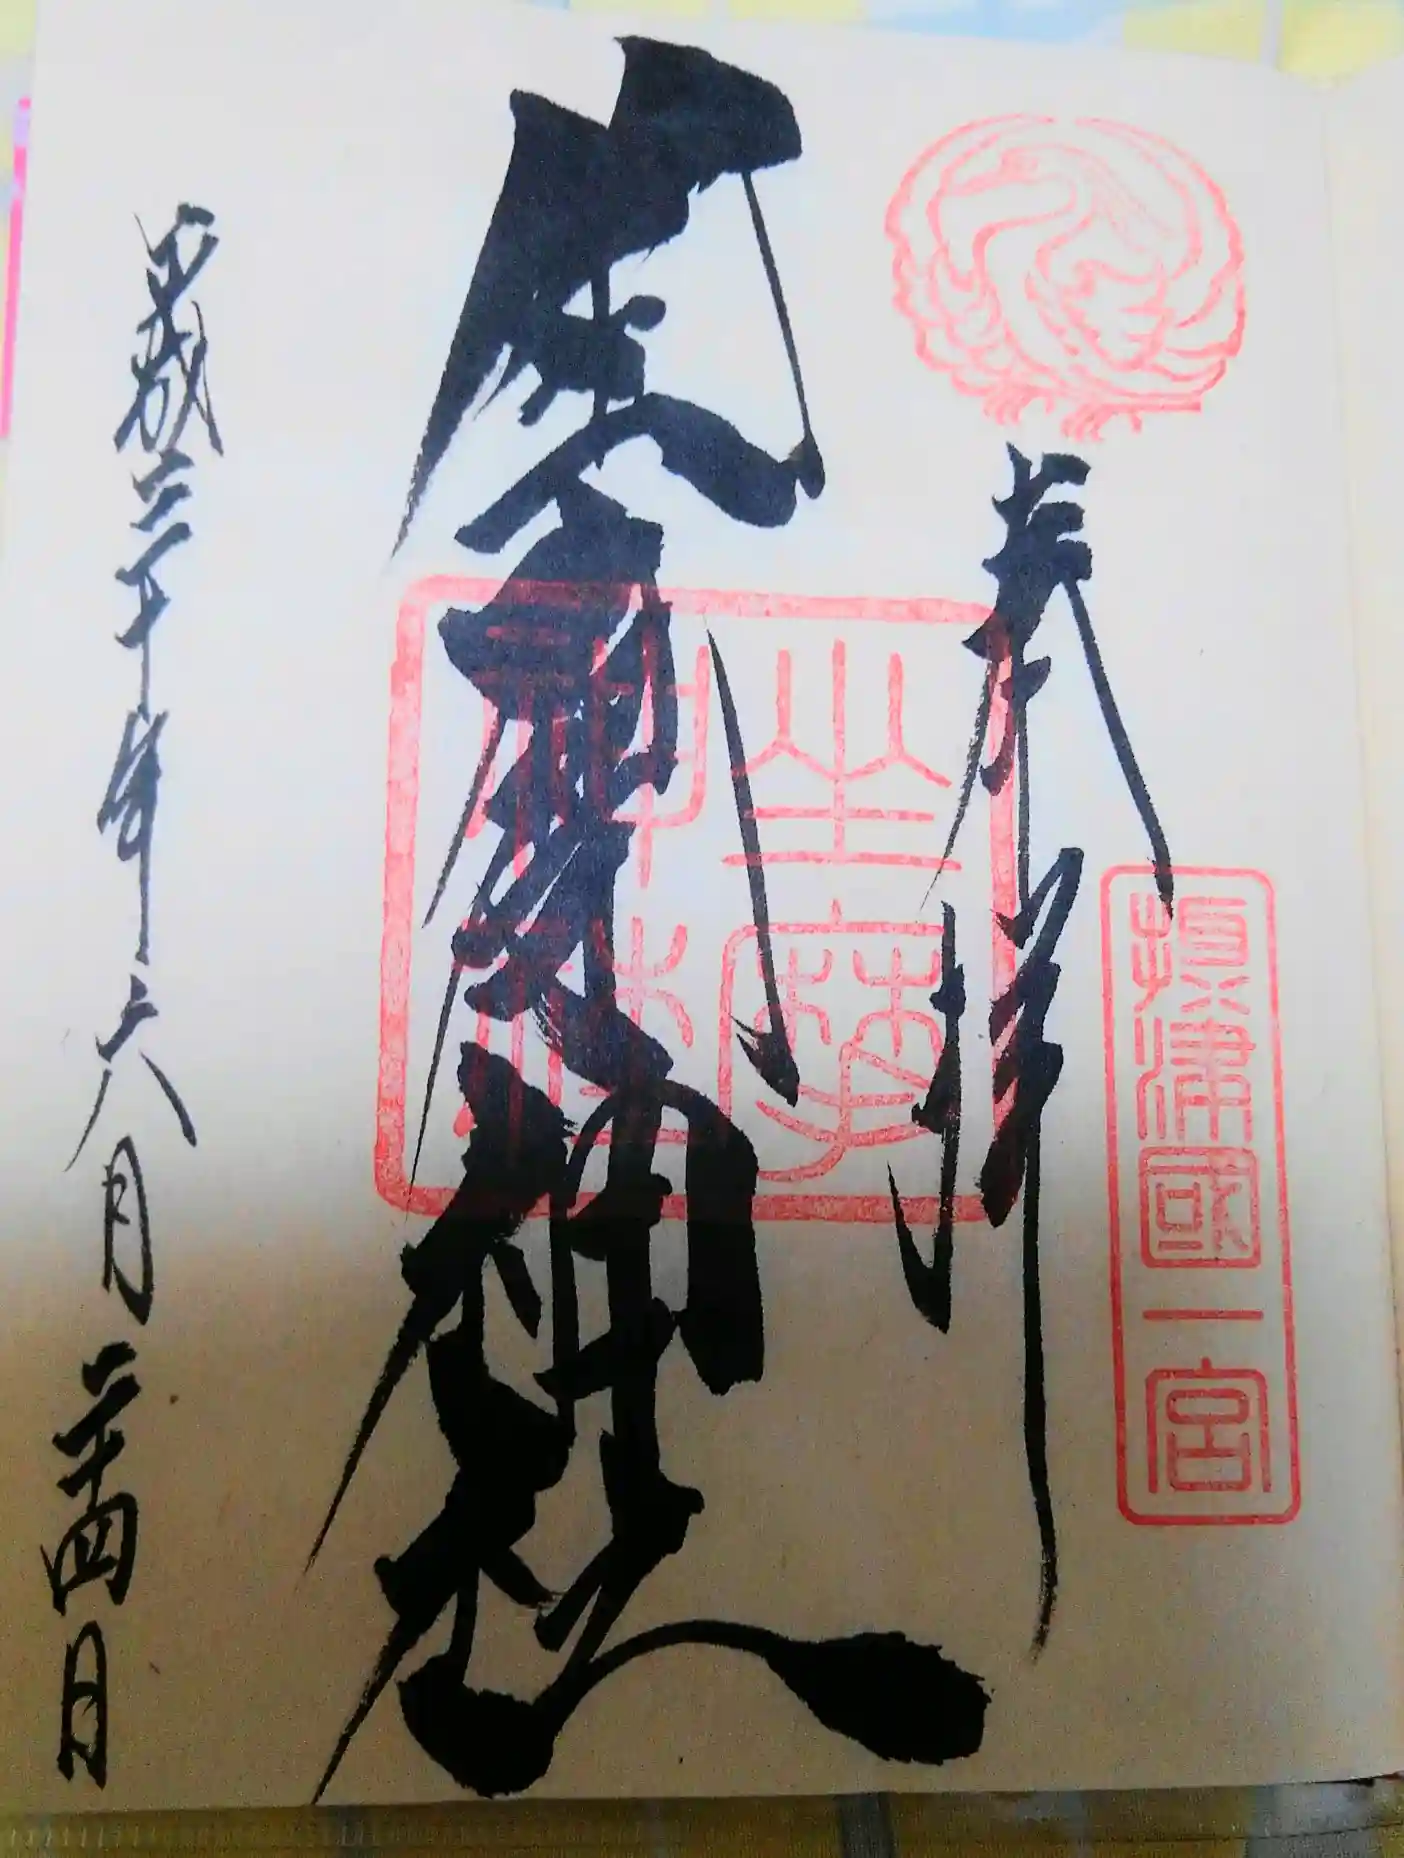 奉拝
攝津國一宮
坐摩神社
坐摩神社
平成三十年六月二十四日